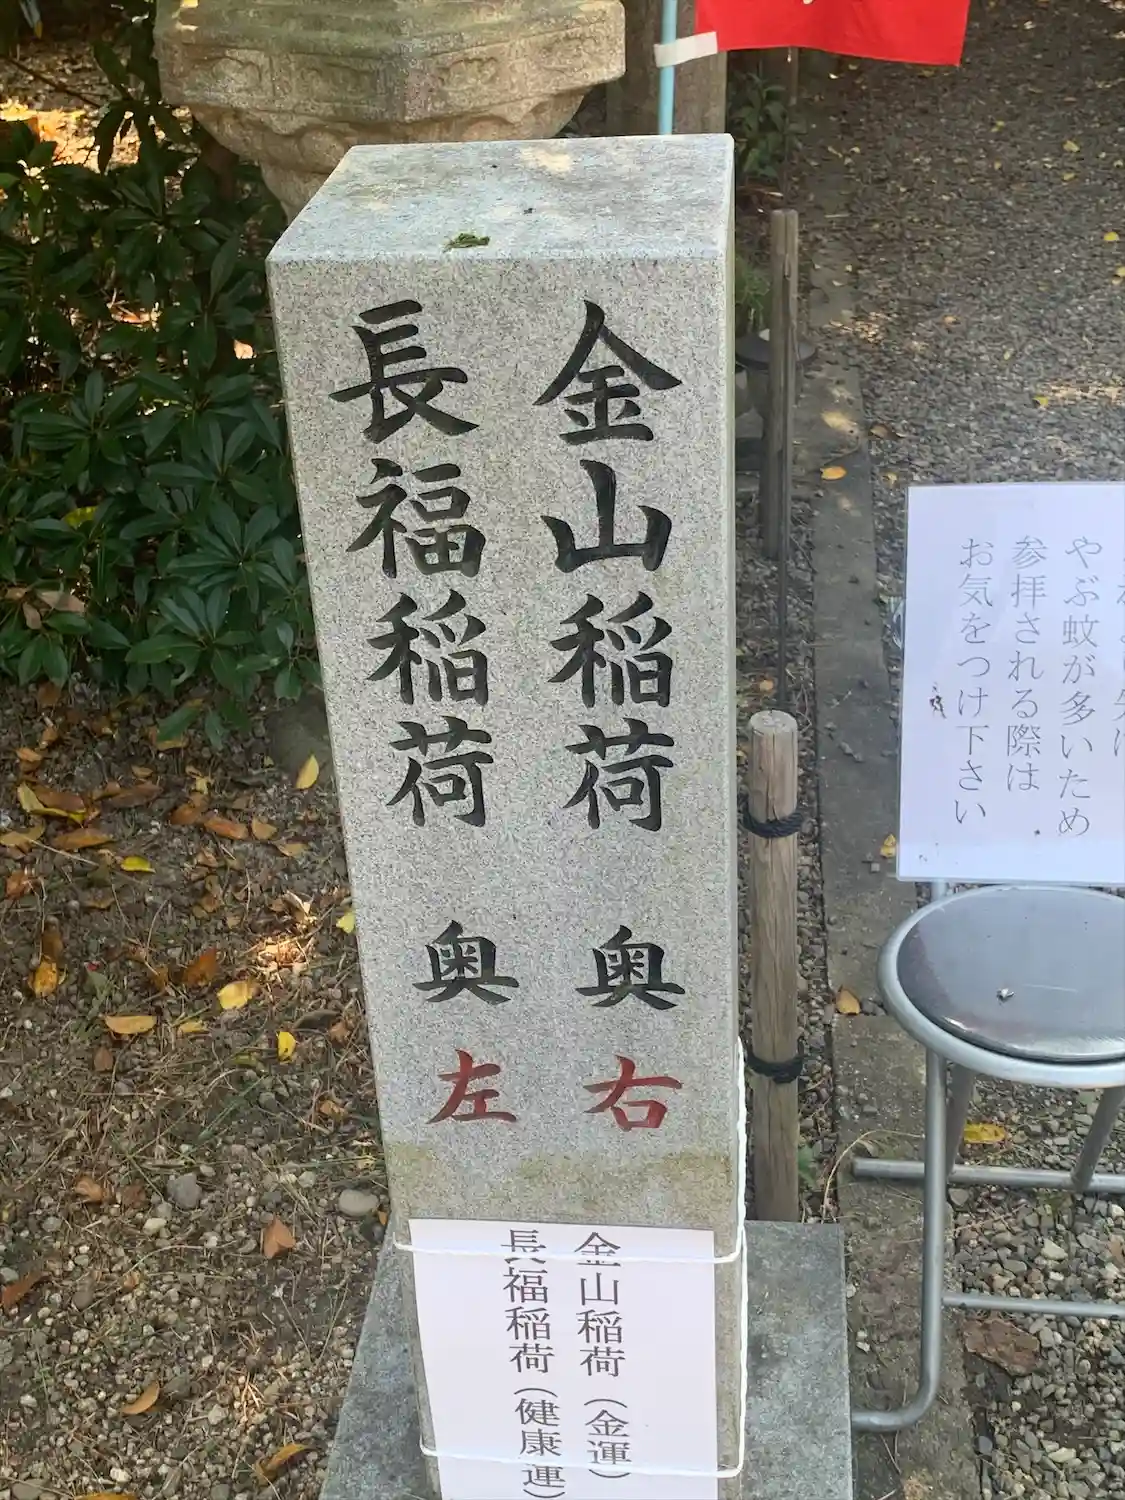 金山稲荷 奥右
長福稲荷 奥左
金山稲荷(金運)
長福稲荷(健康運)
やぶ蚊が多いため
参拝される際は
お気をつけ下さい